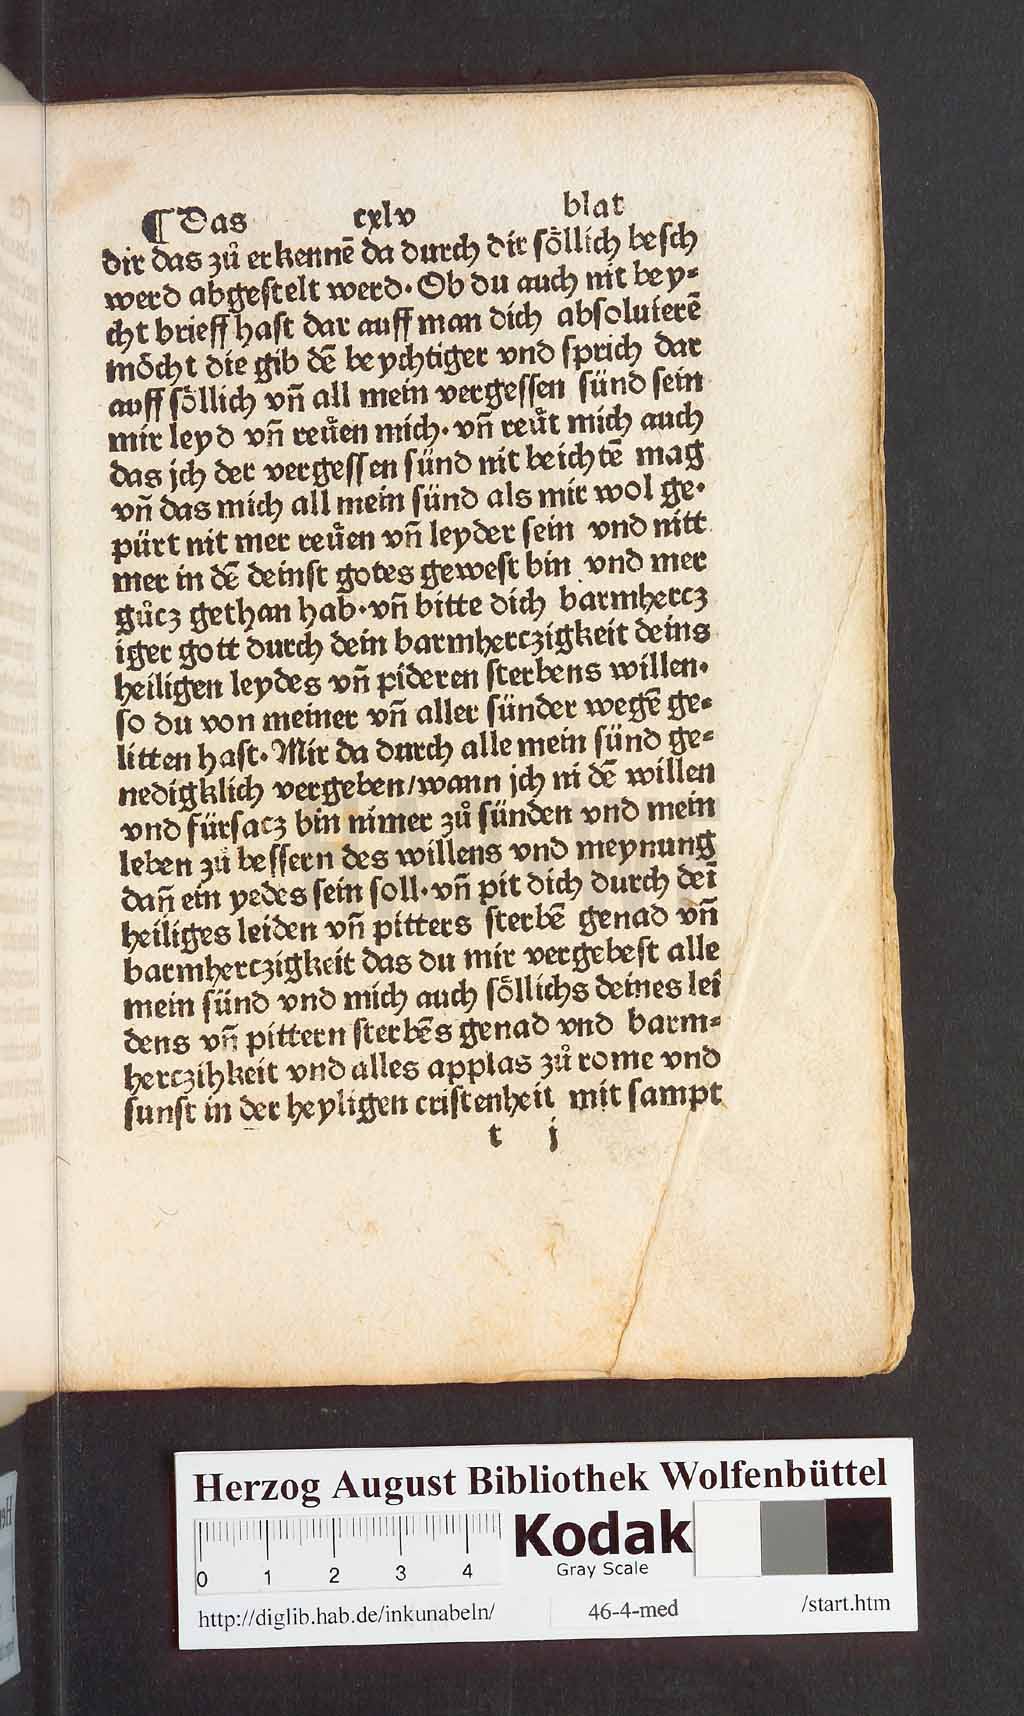 ¶ Das cxlv blat
dir das zuͦ erkennē da durch dir soͤllich besch
werd abgestelt werd. Ob du auch nit bey⸗
cht brieff hast dar auff man dich absoluierē
moͤcht die gib dē beychtiger vnd sprich dar
auff soͤllich vñ all mein vergessen sünd sein
mir leyd vñ reuͤen mich. vñ reuͤt mich auch
das jch der vergessen sünd nit beichtē mag
vñ das mich all mein sünd als mir wol ge⸗
pürt nit mer reuͤen vñ leyder sein vnd nitt
mer in dē deinst gotes gewest bin vnd mer
guͦcz gethan hab. vñ bitte dich barmhercz
iger gott durch dein barmherczigkeit deins
heiligen leydes vñ pideren sterbens willen.
so du von meiner vñ aller sünder wegē ge⸗
litten hast. Mir da durch alle mein sünd ge⸗
nedigklich vergeben/wann jch ni dē willen
vnd fürsacz bin nimer zuͦ sünden vnd mein
leben zuͦ bessern des willens vnd meynung
dañ ein yedes sein soll. vñ pit dich durch deī
heiliges leiden vñ pitters sterbē genad vñ
barmherczigkeit das du mir vergebest alle
mein sünd vnd mich auch soͤllichs deines lei
dens vñ pittern sterbēs genad vnd barm⸗
herczihkeit vnd alles applas zuͦ rome vnd
sunst in der heyligen cristenheit mit sampt
t j
Herzog August Bibliothek Wolfenbüttel
0 1 2 3 4
Kodak
Gray Scale
http://diglib.hab.de/inkunabeln/ 46-4-med /start.htm